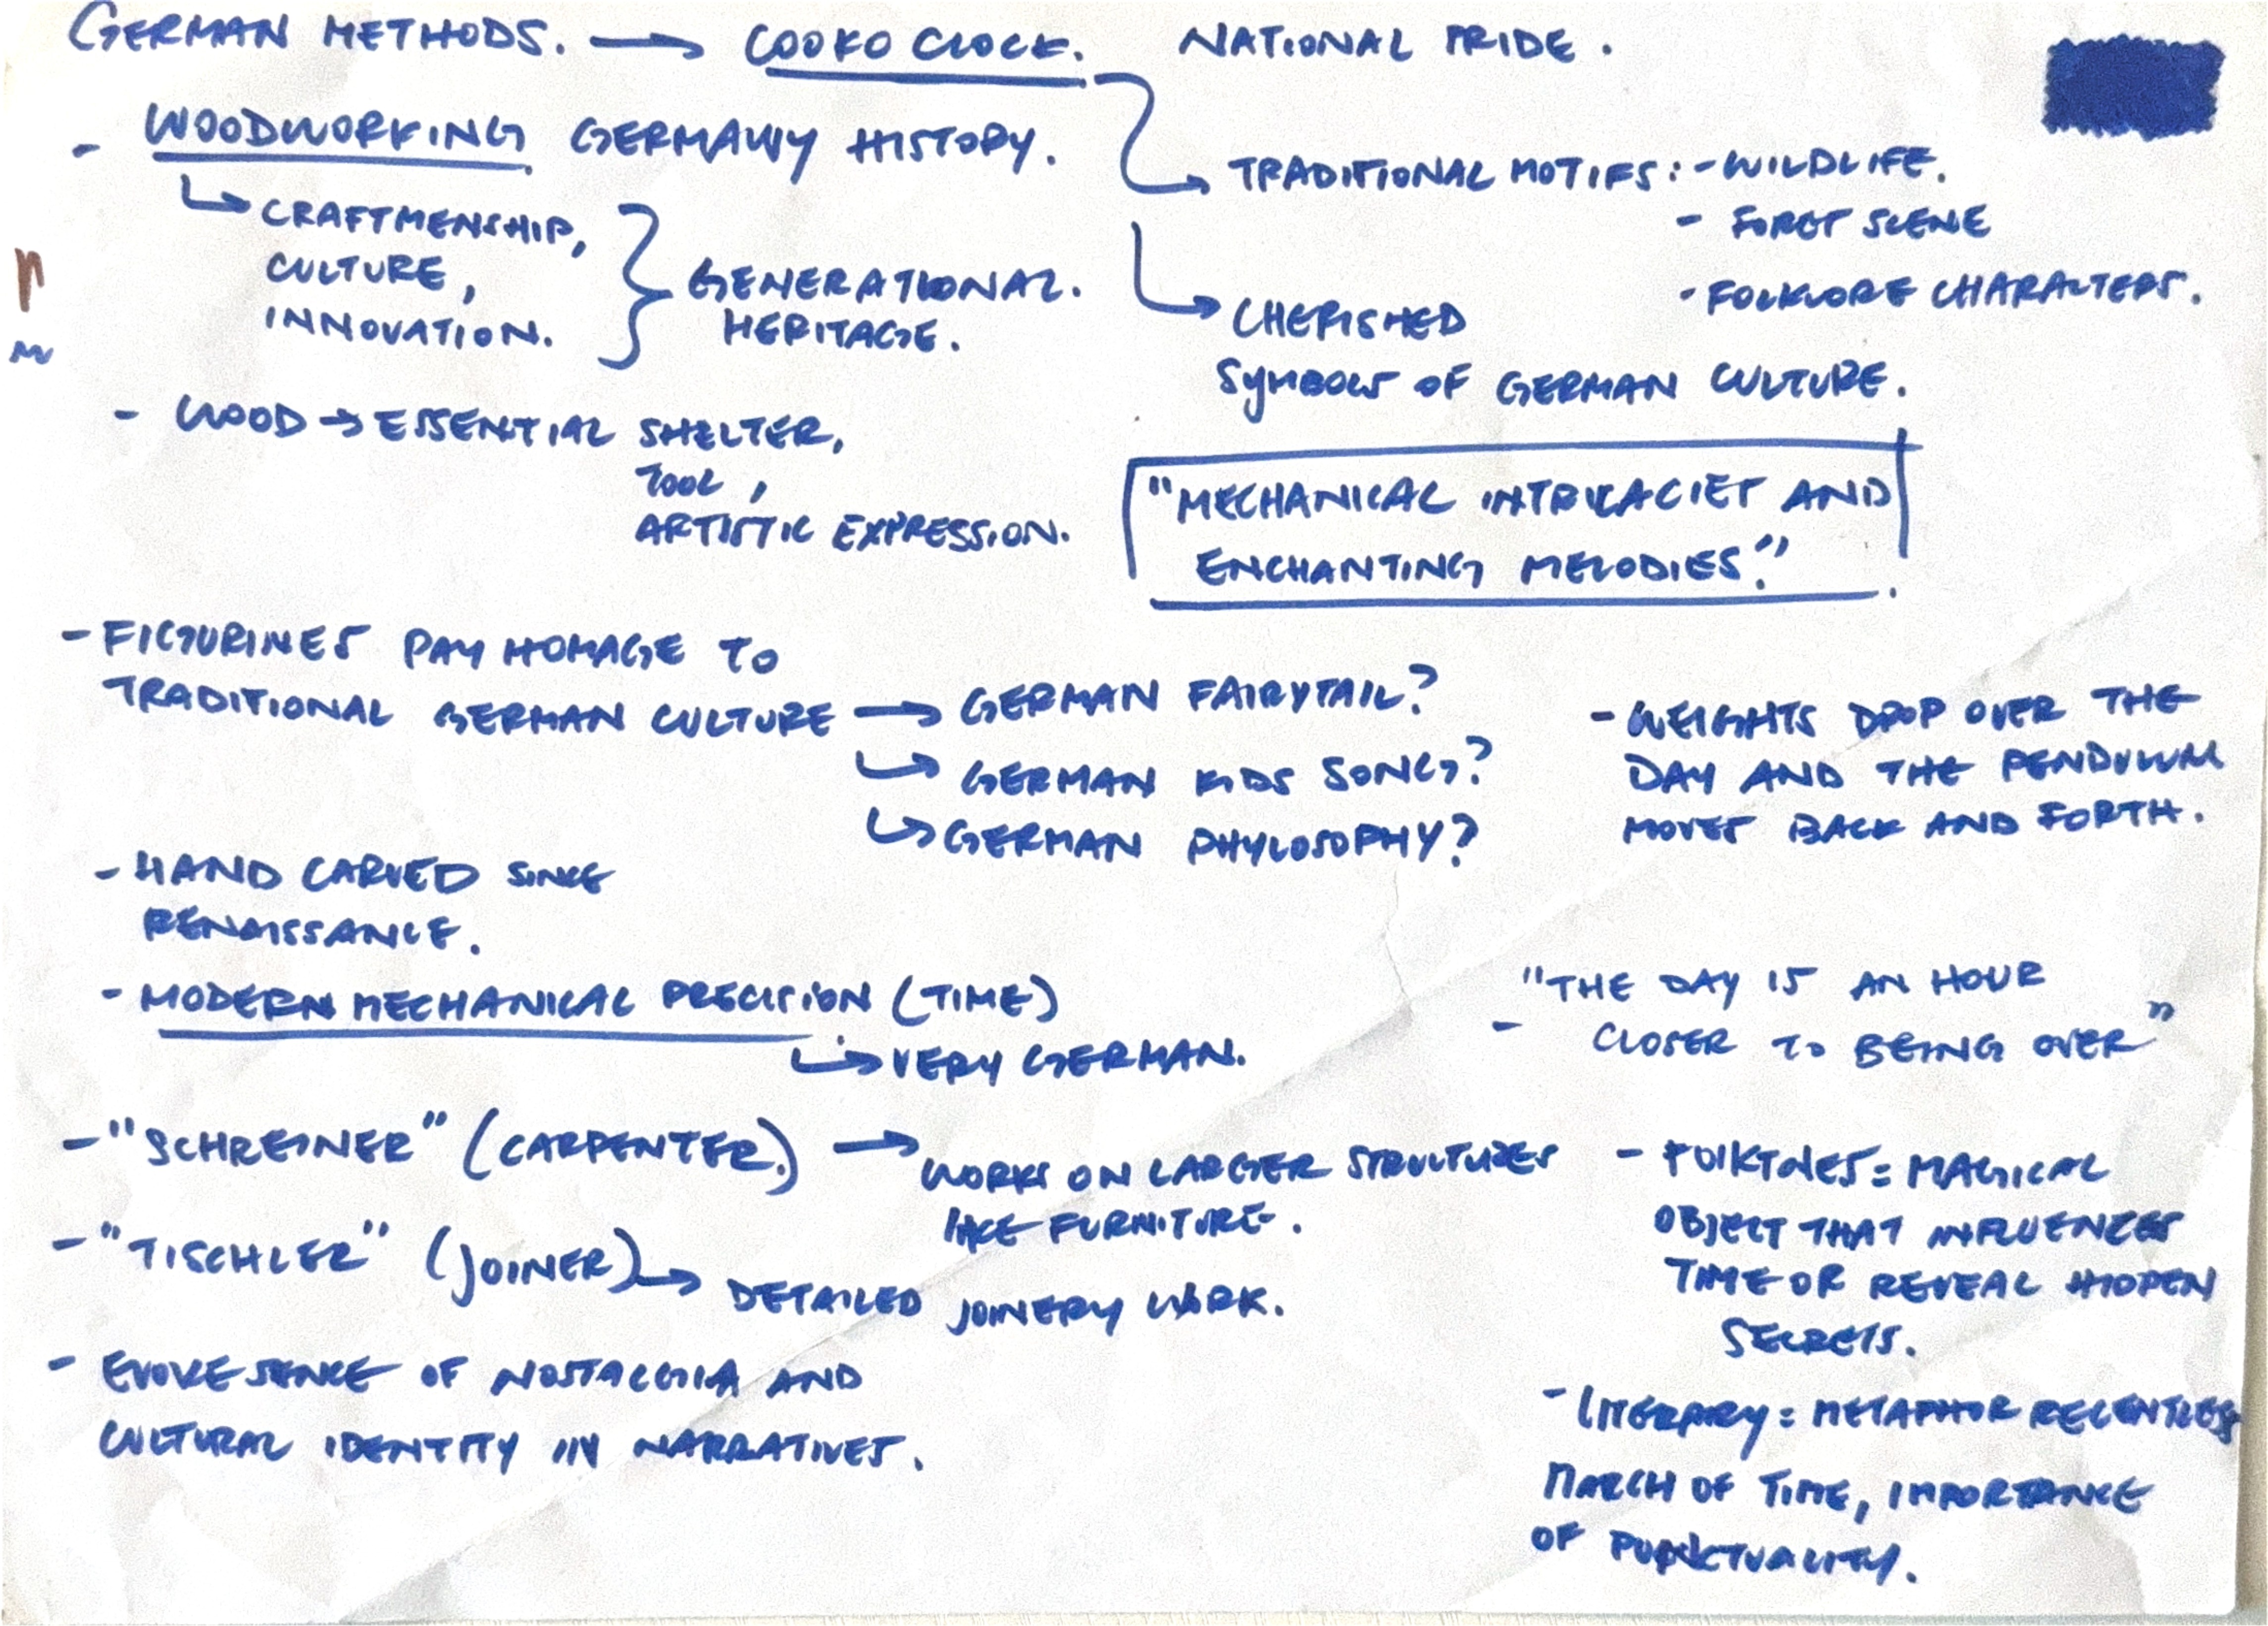 GERMAN METHODS. → COOKO CLOCK. NATIONAL PRIDE.
- WOODWORKING GERMANY HISTORY.
↳ CRAFTMENSHIP,
CULTURE,
INNOVATION.
GENERATIONAL.
HERITAGE.
TRADITIONAL MOTIFS: - WILDLIFE.
- FORET SCENE
- FOLKLORE CHARACTERS.
CHERISHED
SYMBOLS OF GERMAN CULTURE.
- WOOD → ESSENTIAL SHELTER,
TOOL,
ARTISTIC EXPRESSION.
"MECHANICAL INTRICACIES AND
ENCHANTING MELODIES."
- FIGURINES PAY HOMAGE TO
TRADITIONAL GERMAN CULTURE → GERMAN FAIRYTAIL?
↳ GERMAN KIDS SONG?
↳ GERMAN PHYLOSOPHY?
- WEIGHTS DROP OVER THE
DAY AND THE PENDULUM
MOVES BACK AND FORTH.
- HAND CARVED SINCE
RENAISSANCE.
- MODERN MECHANICAL PRECISION (TIME)
↳ VERY GERMAN.
- "THE DAY IS AN HOUR
CLOSER TO BEING OVER"
- "SCHREINER" (CARPENTER.) → WORKS ON LARGER STRUCTURES
LIKE FURNITURE.
- "TISCHLER" (JOINER) → DETAILED JOINERY WORK.
- EVOKE SENSE OF NOSTALGIA AND
CULTURAL IDENTITY IN NARRATIVES.
- FOLKTALES = MAGICAL
OBJECT THAT INFLUENCES
TIME OR REVEAL HIDDEN
SECRETS.
- LITERARY = METAPHOR RELENTLESS
MARCH OF TIME, IMPORTANCE
OF PUNKTUALITY.